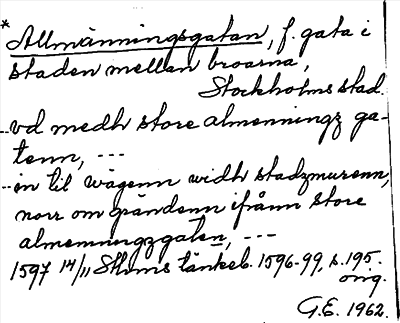 * Allmänningsgatan, f. gata i
staden mellan broarna,
Stockholms stad.
..vd medh store almenningz ga-
tenn, ---
..in til wägenn widh stadzmurenn,
norr om grändenn ifrånn store
almenningzgaten, ---
1597 14/11 Sthms tänkeb. 1596-99, s. 195.
orig.
G.E. 1962.